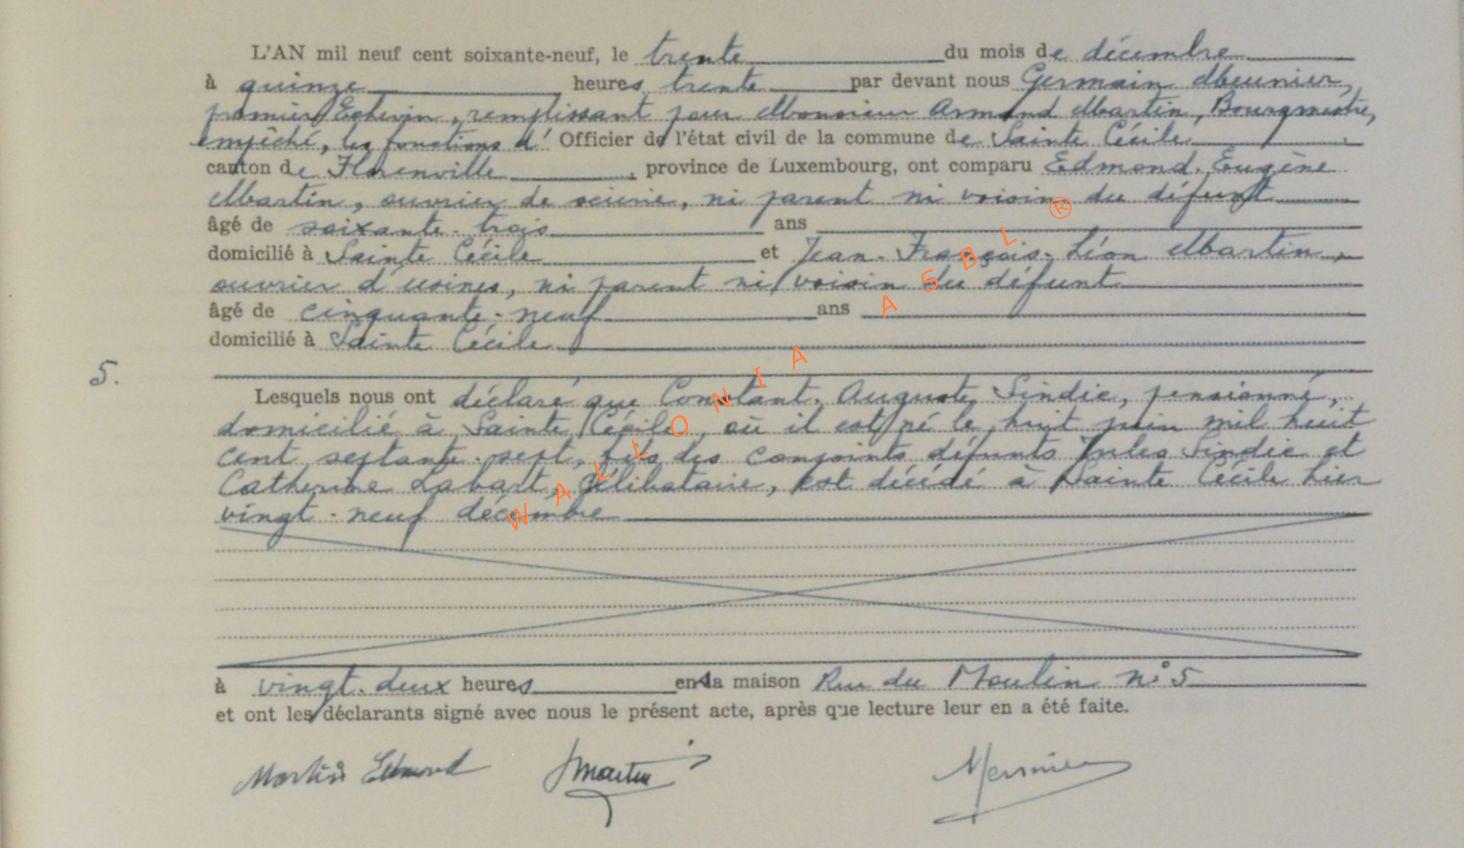 L'AN mil neuf cent soixante-neuf, le trente du mois de décembre
à quinze heures trente par devant nous Germain Meunier,
premier Echevin, remplissant pour Monsieur Armand Martin, Bourgmestre,
empêché, les fonctions d' Officier de l'état civil de la commune de Sainte Cécile
canton de Florenville, province de Luxembourg, ont comparu Edmond-Eugène
Martin, ouvrier de scierie, ni parent ni voisin du défunt
âgé de soixante-trois ans
domicilié à Sainte Cécile et Jean-François-Léon Martin,
ouvrier d'usines, ni parent ni voisin du défunt
âgé de cinquante-neuf ans
domicilié à Sainte Cécile
5.
Lesquels nous ont déclaré que Constant-Auguste Sindic, pensionné,
domicilié à Sainte Cécile, où il est né le huit juin mil huit
cent septante-sept, fils des conjoints défunts Jules Sindic et
Catherine Labart, célibataire, est décédé à Sainte Cécile hier
vingt-neuf décembre
à vingt-deux heures en la maison Rue du Moulin n° 5
et ont les déclarants signé avec nous le présent acte, après que lecture leur en a été faite.
Martin Edmond JMartin Meunier
WALLONIA ASBL ®